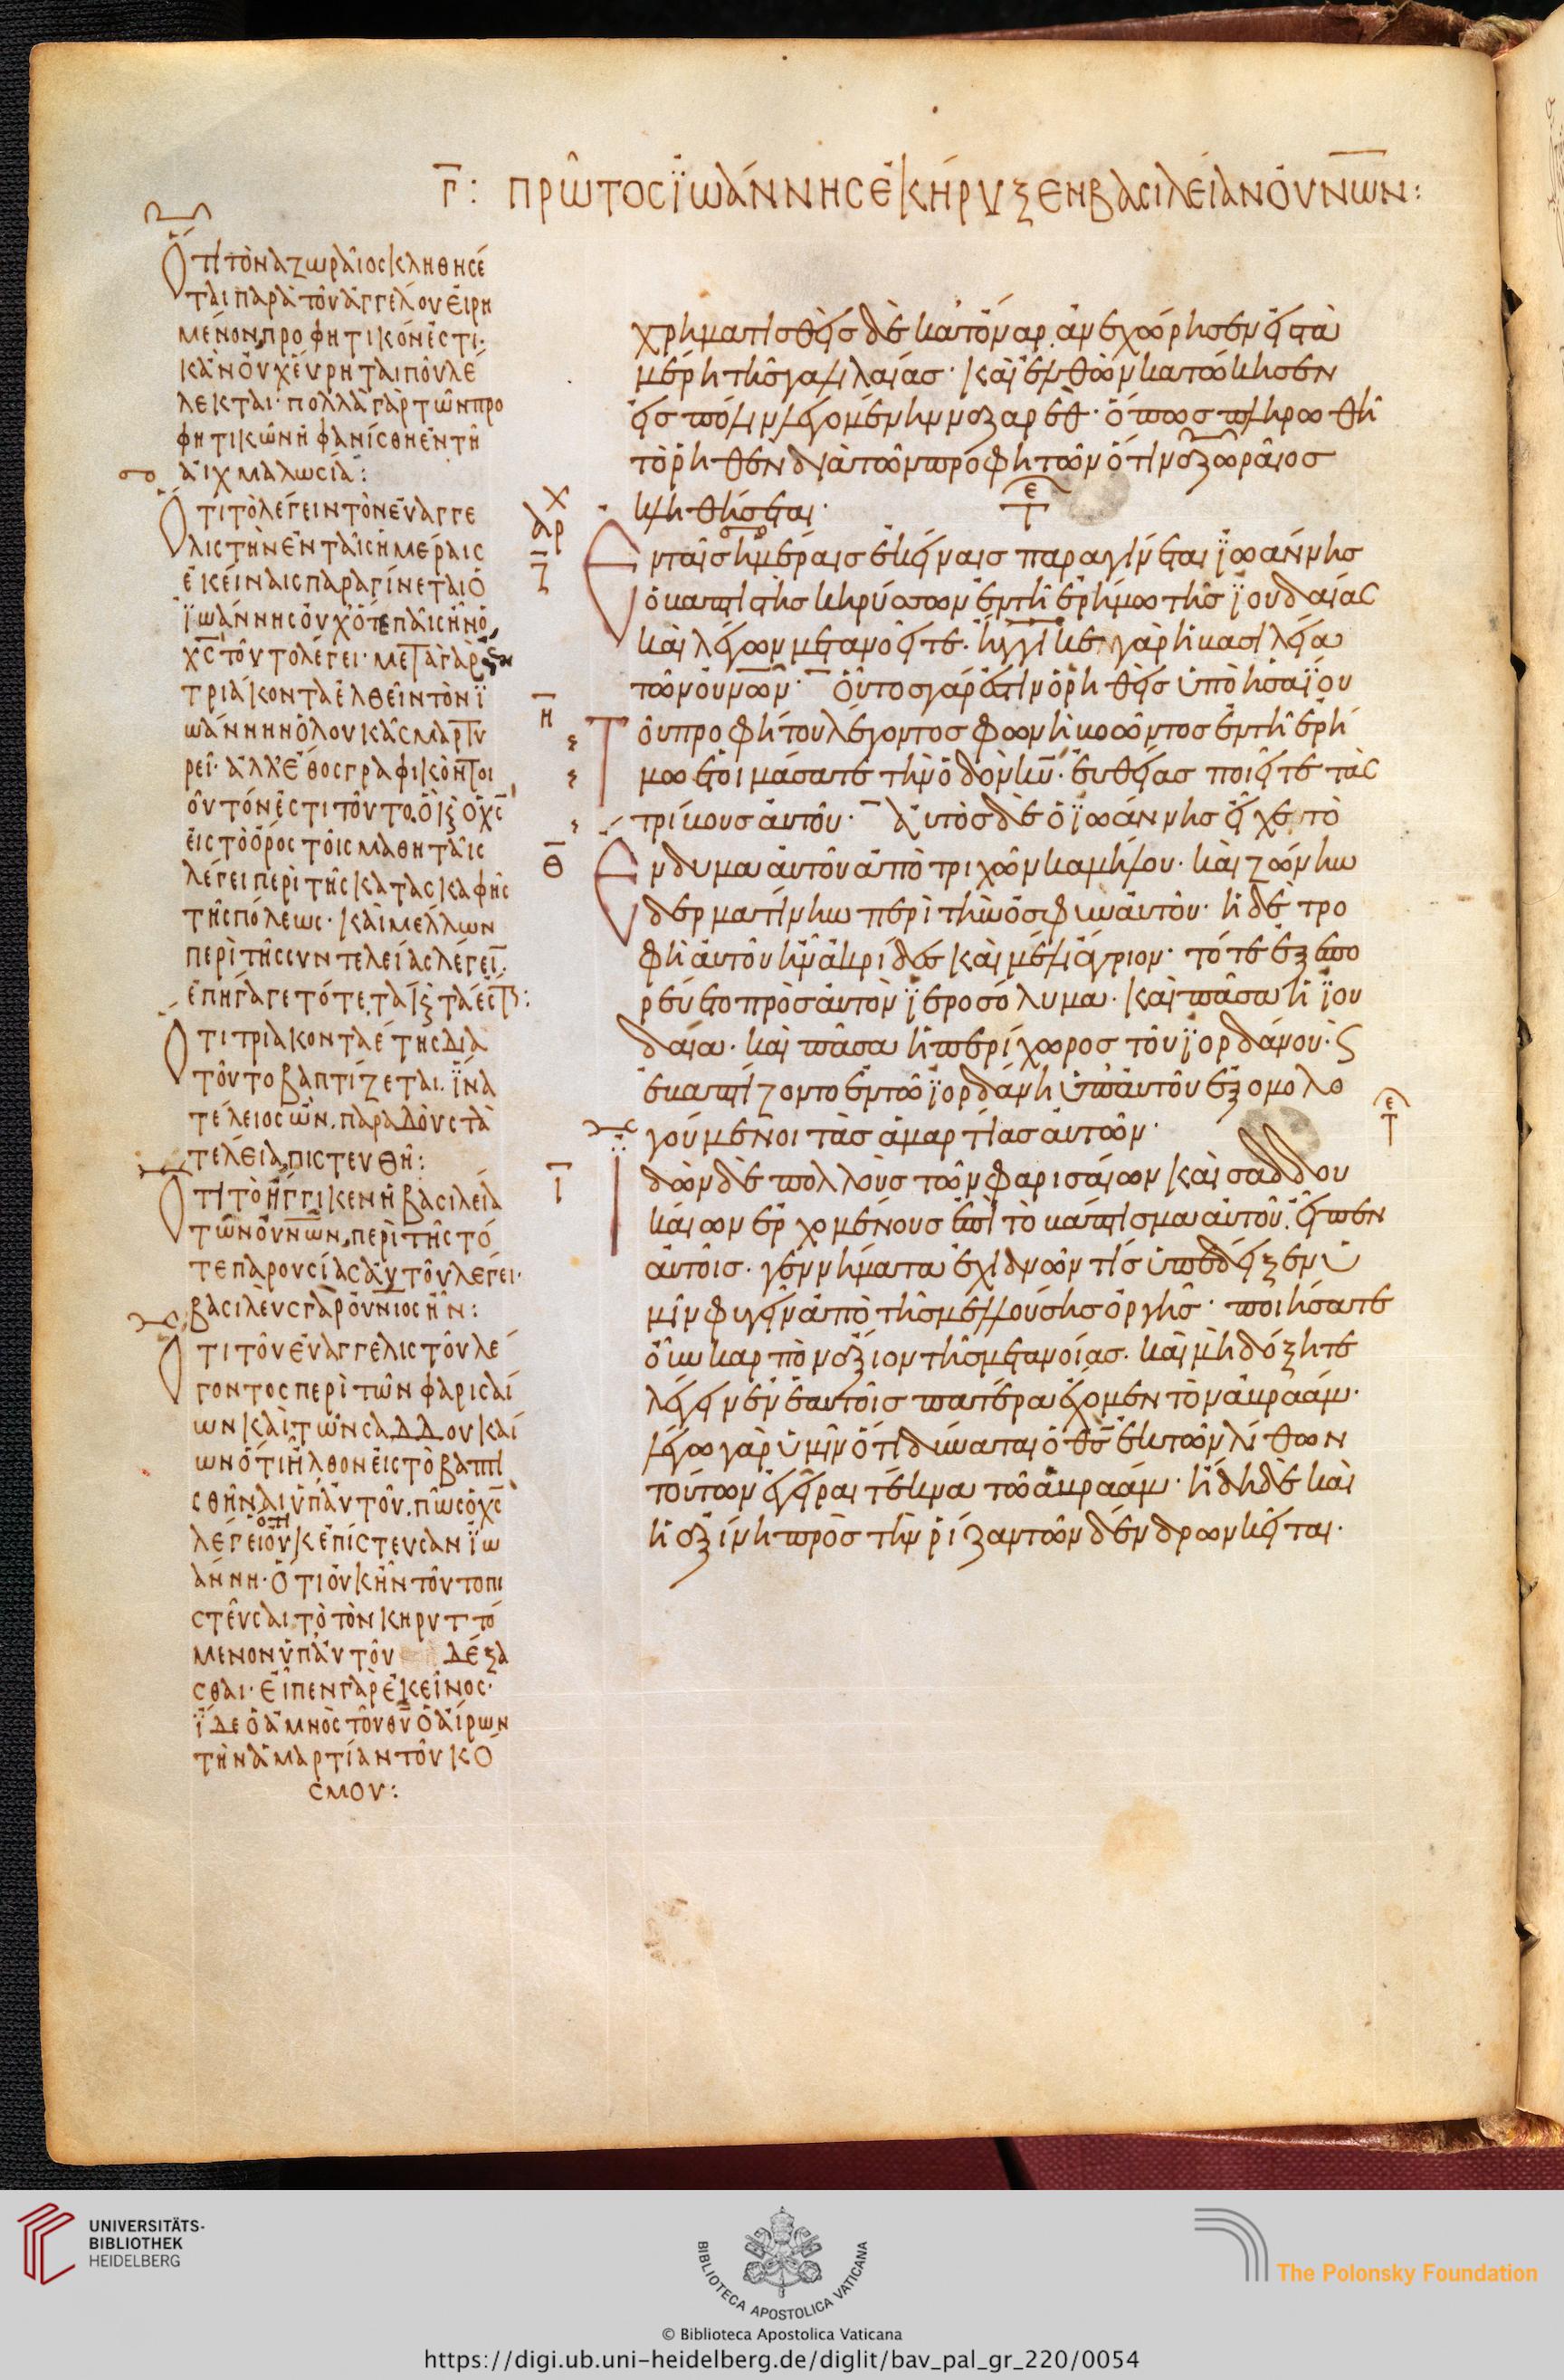 γ: πρῶτος ϊωάννης ἐκήρυξεν βασιλείαν οὐνῶν:
Ὅτι τὸ ναζωραῖος κληθήσε
ται παρὰ τοῦ ἀγγέλου εἰρη
μένον, προφητικόν ἐστι·
κἂν οὐχ εὕρηται ποῦ λέ
λεκται· πολλὰ γὰρ τῶν προ
φητικῶν ἠφανίσθη ἐν τῇ
αἰχμαλωσίᾳ:
Ὅτι τὸ λέγειν τὸν εὐαγγε
λιστὴν ἐν ταῖς ἡμέραις
ἐκείναις παραγίνεται ὁ
ϊωάννης οὐχ ὅτε παῖς ἦν ὁ
χς τοῦτο λέγει· μετὰ γὰρ
τριάκοντα ἐλθεῖν τὸν ϊ
ωάννην ὁ λουκᾶς μαρτυ
ρεῖ· ἀλλ' ἔθος γραφικὸν
τοῦτόν ἐστι τοῦτο. ὁ χς
εἰς τὸ ὄρος τοῖς μαθηταῖς
λέγει περὶ τῆς κατασκαφῆς
τῆς πόλεως· καὶ μέλλων
περὶ τῆς συντελείας λέγειν·
ἐπήγαγε τότε
Ὅτι τριακονταέτης διὰ
τοῦτο βαπτίζεται. ϊνα
τέλειος ὢν, παραδοὺς τὰ
τέλεια, πιστευθῇ:
Ὅτι τὸ ἤγγικεν ἡ βασιλεία
τῶν οὐνῶν, περὶ τῆς τό
τε παρουσίας αὐτοῦ λέγει·
βασιλεὺς γὰρ οὐνιος ἦν:
Ὅτι τοῦ εὐαγγελιστοῦ λέ
γοντος περὶ τῶν φαρισαί
ων καὶ τῶν σαδδουκαί
ων ὅτι ἦλθον εἰς τὸ βαπτι
σθῆναι ὑπ' αὐτοῦ. πῶς ὁ χς
λέγει ὅτι οὐκ ἐπίστευσαν ϊω
άννη· ὅτι οὐκ ἦν τοῦτο πι
στεῦσαι, τὸ τὸν κηρυττό
μενον ὑπ' αὐτοῦ δέξα
σθαι· εἶπεν γὰρ ἐκεῖνος·
ϊδε ὁ ἀμνὸς τοῦ θυ ὁ αἴρων
τὴν ἁμαρτίαν τοῦ κό
σμου:
χρηματισθεὶς δὲ κατ' ὄναρ. ἀνεχώρησεν εἰς τὰ
μέρη τῆς γαλιλαίας· καὶ ἐλθὼν κατώκησεν
εἰς πόλιν λεγομένην ναζαρέθ· ὅπως πληρωθῇ
τὸ ῥηθὲν διὰ τῶν προφητῶν ὅτι ναζωραῖος
κληθήσεται·
Ἐν ταῖς ἡμέραις ἐκείναις παραγίνεται ϊωάννης
ὁ βαπτιστὴς κηρύσσων ἐν τῇ ἐρήμω τῆς ϊουδαίας
καὶ λέγων μετανοεῖτε· ἤγγικε γὰρ ἡ βασιλεία
τῶν οὐνῶν· οὗτος γάρ ἐστιν ὁ ῥηθεὶς ὑπὸ ἡσαϊου
Τοῦ προφήτου λέγοντος φωνὴ βοῶντος ἐν τῇ ἐρή
μω ἑτοιμάσατε τὴν ὁδὸν κυ· εὐθείας ποιεῖτε τὰς
τρίβους αὐτοῦ· αὐτὸς δὲ ὁ ϊωάννης εἶχε τὸ
Ἔνδυμα αὐτοῦ ἀπὸ τριχῶν καμήλου· καὶ ζώνην
δερματίνην περὶ τὴν ὀσφὺν αὐτοῦ· ἡ δὲ τρο
φὴ αὐτοῦ ἦν ἀκρίδες καὶ μέλι ἄγριον· τότε ἐξεπο
ρεύετο πρὸς αὐτὸν ϊεροσόλυμα. καὶ πᾶσα ἡ ϊου
δαία. καὶ πᾶσα ἡ περίχωρος τοῦ ϊορδάνου· ϛ
ἐβαπτίζοντο ἐν τῶ ϊορδάνη ὑπ' αὐτοῦ ἐξομολο
γούμενοι τὰς ἁμαρτίας αὐτῶν·
Ἰδὼν δὲ πολλοὺς τῶν φαρισαίων καὶ σαδδου
καίων ἐρχομένους ἐπὶ τὸ βάπτισμα αὐτοῦ. εἶπεν
αὐτοῖς· γεννήματα ἐχιδνῶν τίς ὑπέδειξεν ὑ
μῖν φυγεῖν ἀπὸ τῆς μελλούσης ὀργῆς· ποιήσατε
οὖν καρπὸν ἄξιον τῆς μετανοίας. καὶ μὴ δόξητε
λέγειν ἐν ἑαυτοῖς πατέρα ἔχομεν τὸν ἀβραάμ·
λέγω γὰρ ὑμῖν ὅτι δύναται ὁ θς ἐκ τῶν λίθων
τούτων ἐγεῖραι τέκνα τῶ ἀβραάμ· ἤδη δὲ καὶ
ἡ ἀξίνη πρὸς τὴν ῥίζαν τῶν δένδρων κεῖται·
UNIVERSITÄTS-
BIBLIOTHEK
HEIDELBERG
BIBLIOTECA APOSTOLICA VATICANA
The Polonsky Foundation
© Biblioteca Apostolica Vaticana
https://digi.ub.uni-heidelberg.de/diglit/bav_pal_gr_220/0054